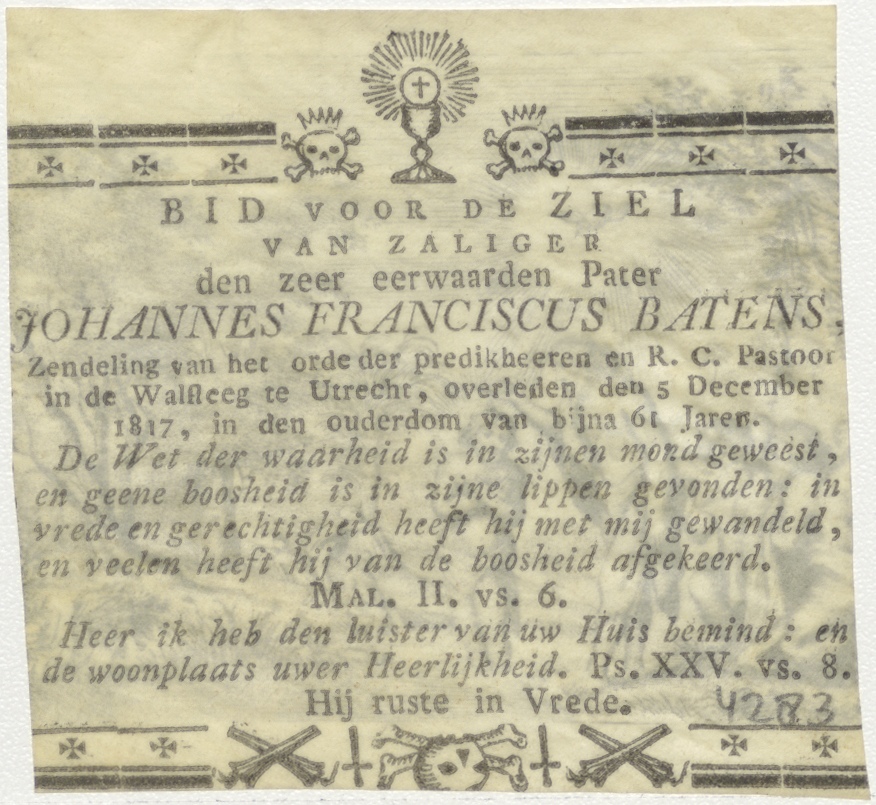 BID VOOR DE ZIEL
VAN ZALIGER
den zeer eerwaarden Pater
JOHANNES FRANCISCUS BATENS,
Zendeling van het orde der predikheeren en R. C. Pastoor
in de Walsteeg te Utrecht, overleden den 5 December
1817, in den ouderdom van bijna 61 Jaren.
De Wet der waarheid is in zijnen mond geweest,
en geene boosheid is in zijne lippen gevonden: in
vrede en gerechtigheid heeft hij met mij gewandeld,
en veelen heeft hij van de boosheid afgekeerd.
MAL. II. vs. 6.
Heer ik heb den luister van uw Huis bemind: en
de woonplaats uwer Heerlijkheid. Ps. XXV. vs. 8.
Hij ruste in Vrede.
4283